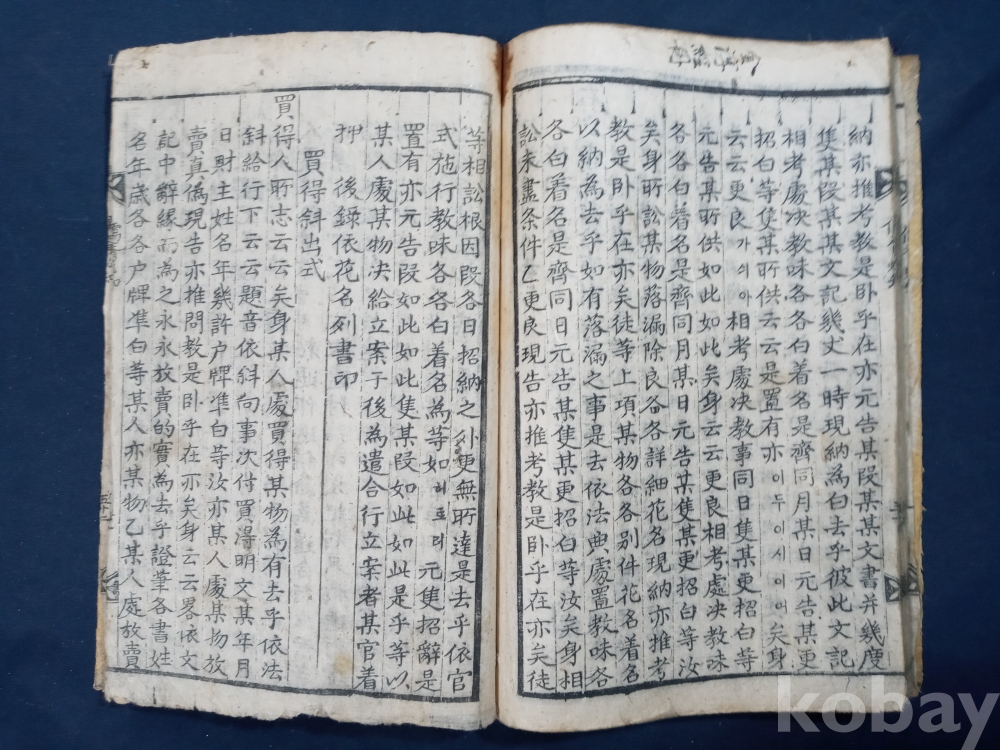 納亦推考敎是卧乎在亦元告某段某某文書并幾度
隻某段某某文記幾丈一時現納爲白去乎彼此文記
相考處决敎味各各白着名是齊同月某日元告某更
招白等隻某所供云云是置有亦이두이시이어矣身
云云更良가의아相考處决敎事同日隻某更招白等
元告某所供如此如此矣身云云更良相考處决敎味
各各白着名是齊同月某日元告某隻某更招白等汝
矣身所訟某物落漏除良各各詳細花名現納亦推考
敎是卧乎在亦矣徒等上項某物各各別件花名着名
以納爲去乎如有落漏之事是去依法典處置敎味各
各白着名是齊同日元告某隻某更招白等汝矣身相
訟未盡条件乙更良現告亦推考敎是卧乎在亦矣徒
等相訟根因段各日招納之外更無所達是去乎依官
式施行敎味各各白着名爲等如더의元隻招辭是
置有亦元告段如此如此隻某段如此如此是乎等以
某人處某物决給立案子後爲遣合行立案者某官着
押 後錄依花名列書印
買得斜出式
買得人所志云云矣身某人處買得某物爲有去乎依法
斜給行下云云題音依斜向事次付買得明文某年月
日財主姓名年幾許户牌準白等汝亦某人處某物放
賣真僞現告亦推問敎是卧乎在亦矣身云云畧依文
記中辭緣而爲之永永放賣的實爲去乎證筆各書姓
名年歲各各户牌準白等某人亦某物乙某人處放賣
kobay